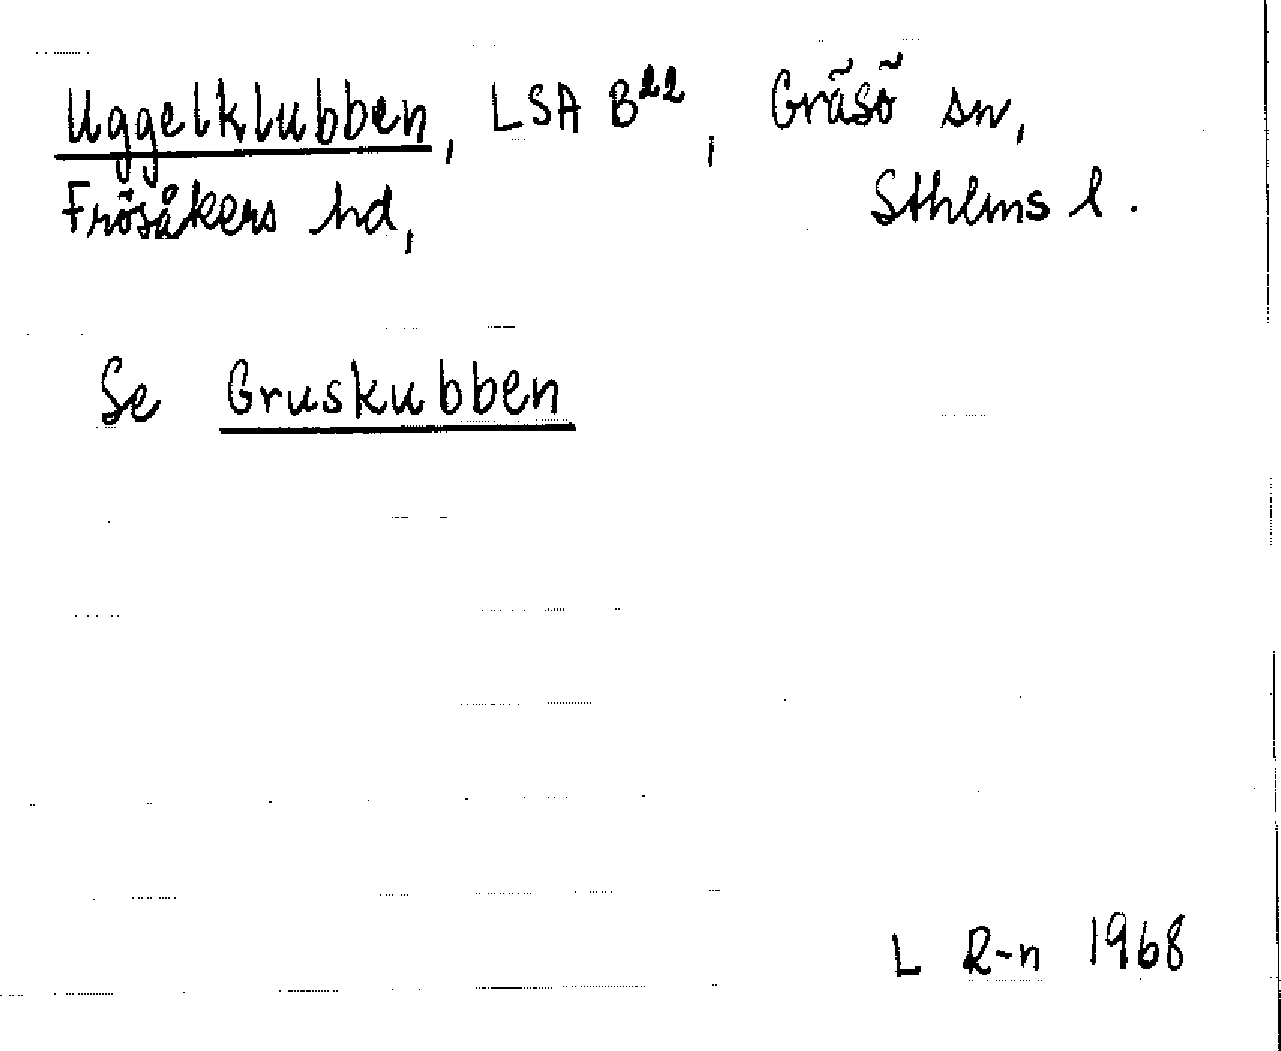 Uggelklubben, LSA B22, Gräsö sn,
Frösåkers hd, Sthlms l.
Se Gruskubben
L R-n 1968